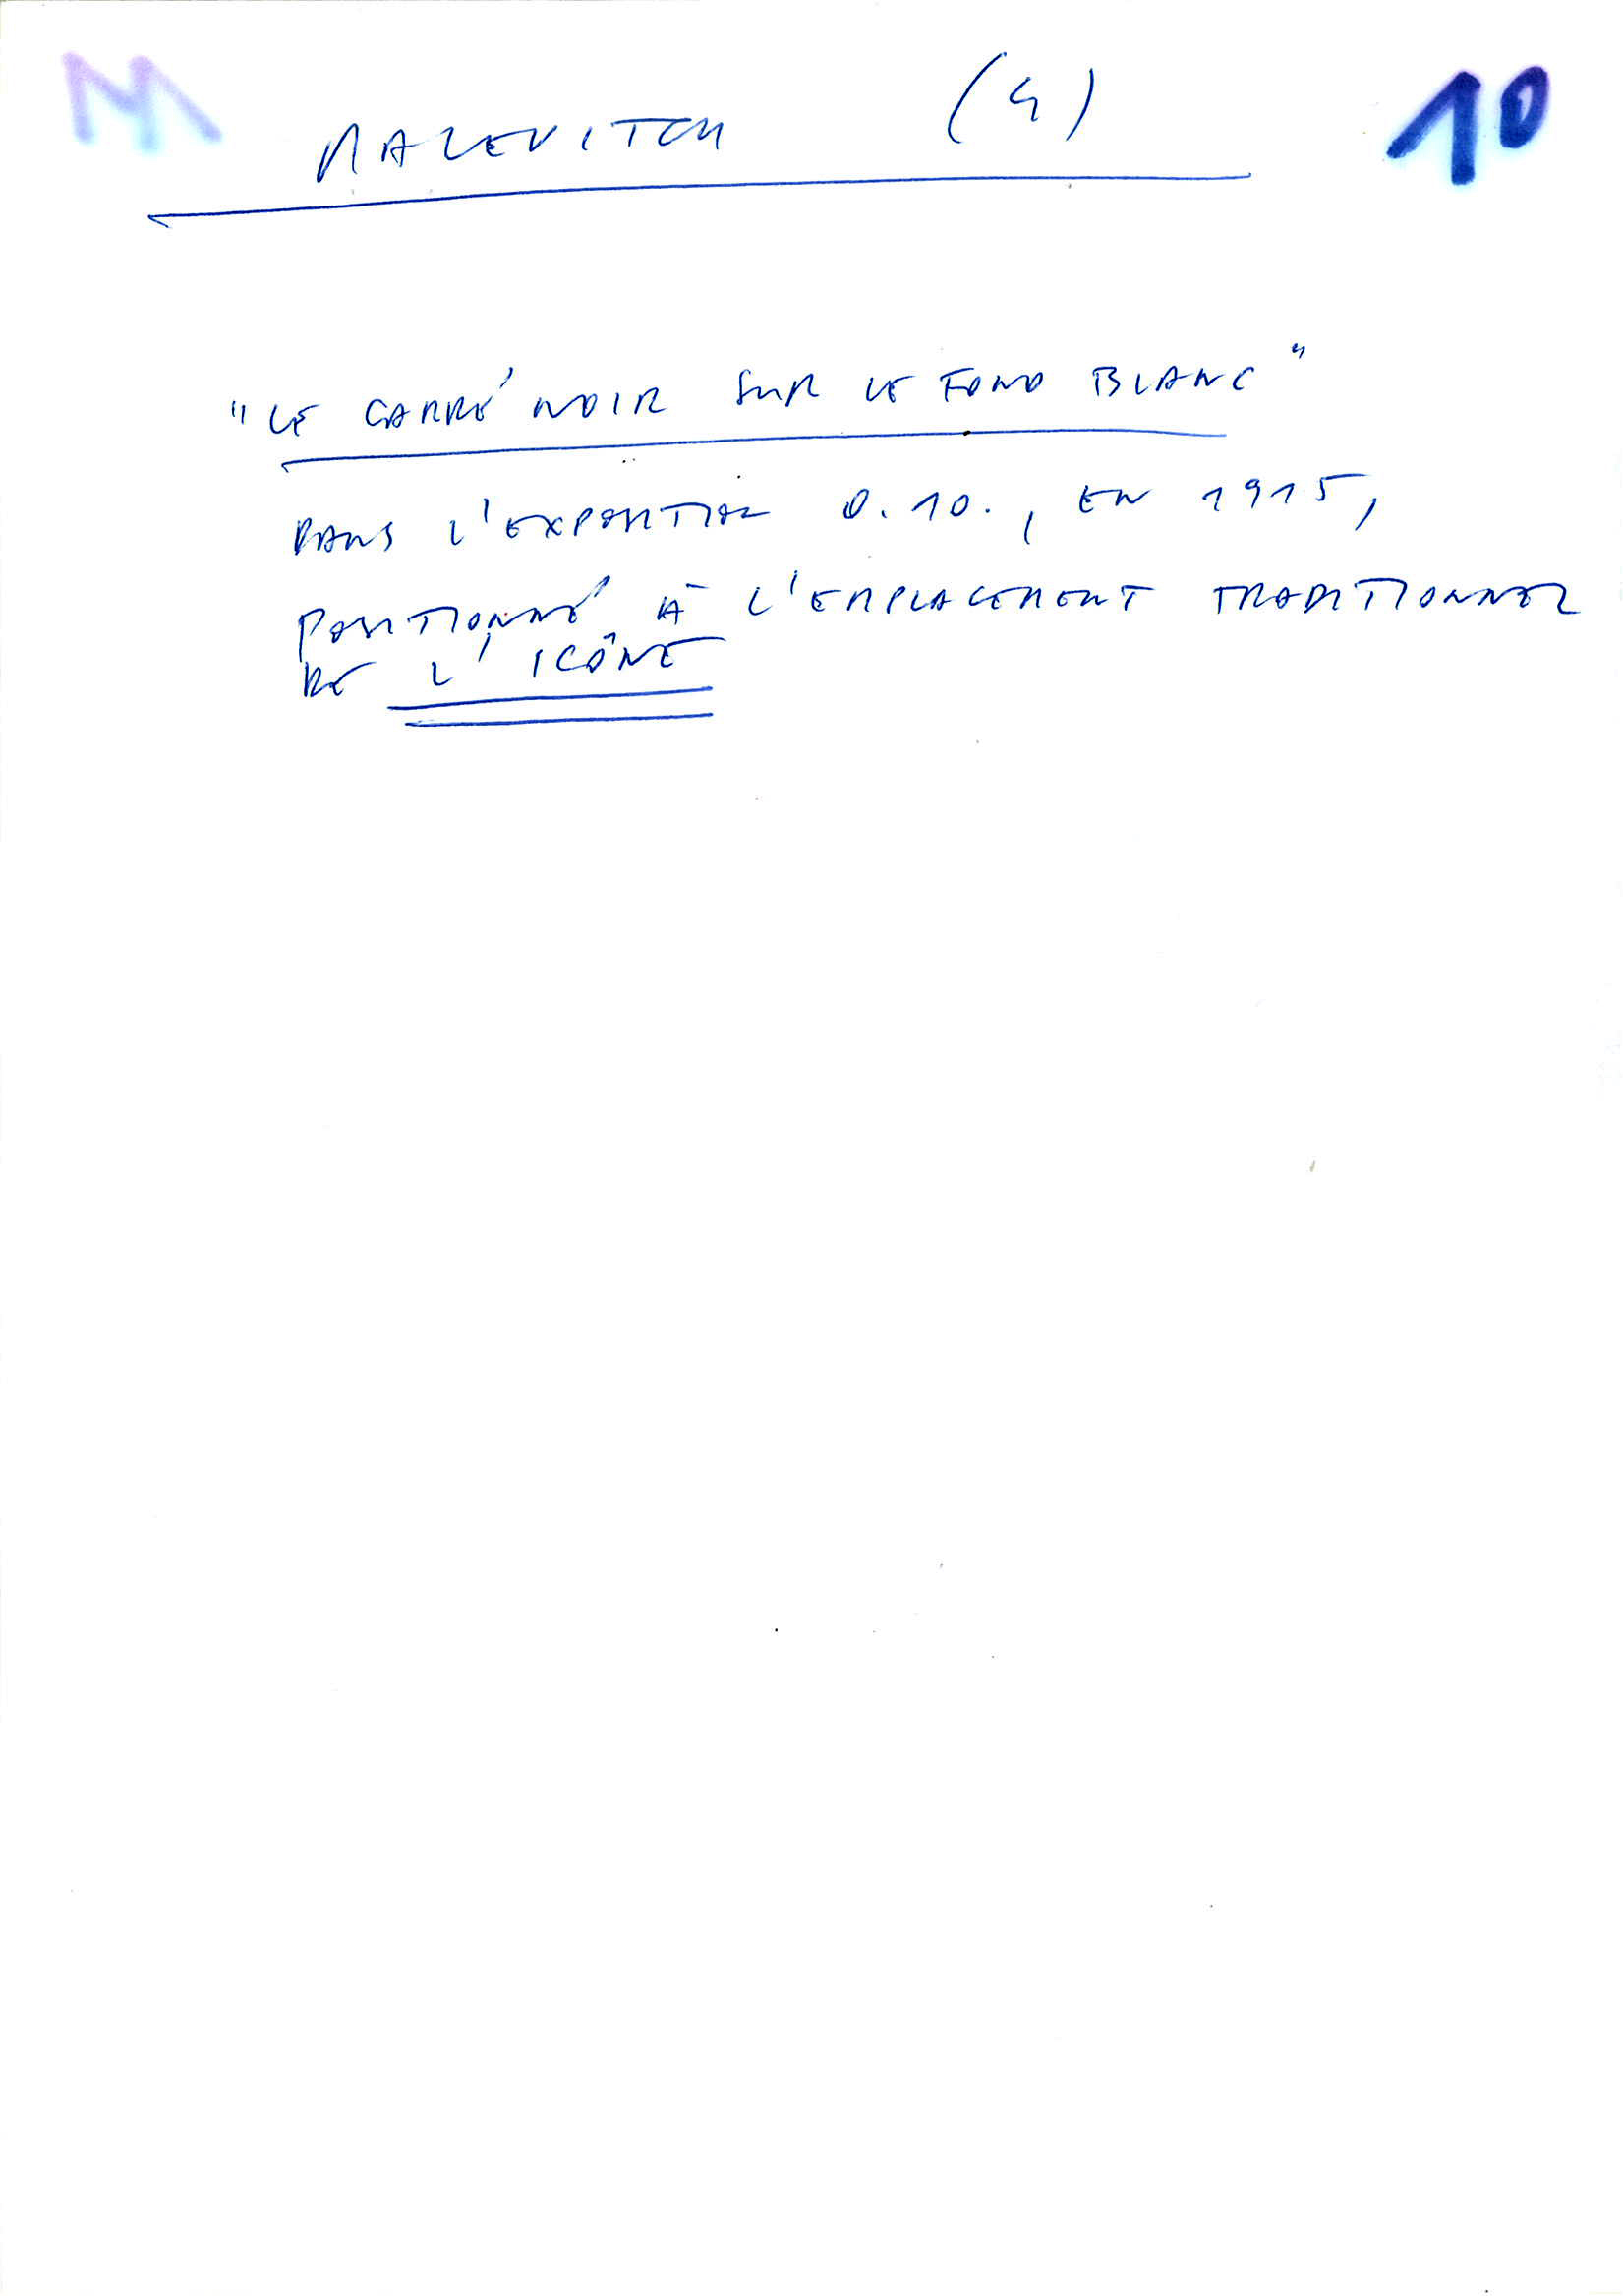 M
MALEVITCH (4)
10
"LE CARRÉ NOIR SUR LE FOND BLANC"
DANS L'EXPOSITION 0.10., EN 1915,
POSITIONNÉ À L'EMPLACEMENT TRADITIONNEL
DE L'ICÔNE